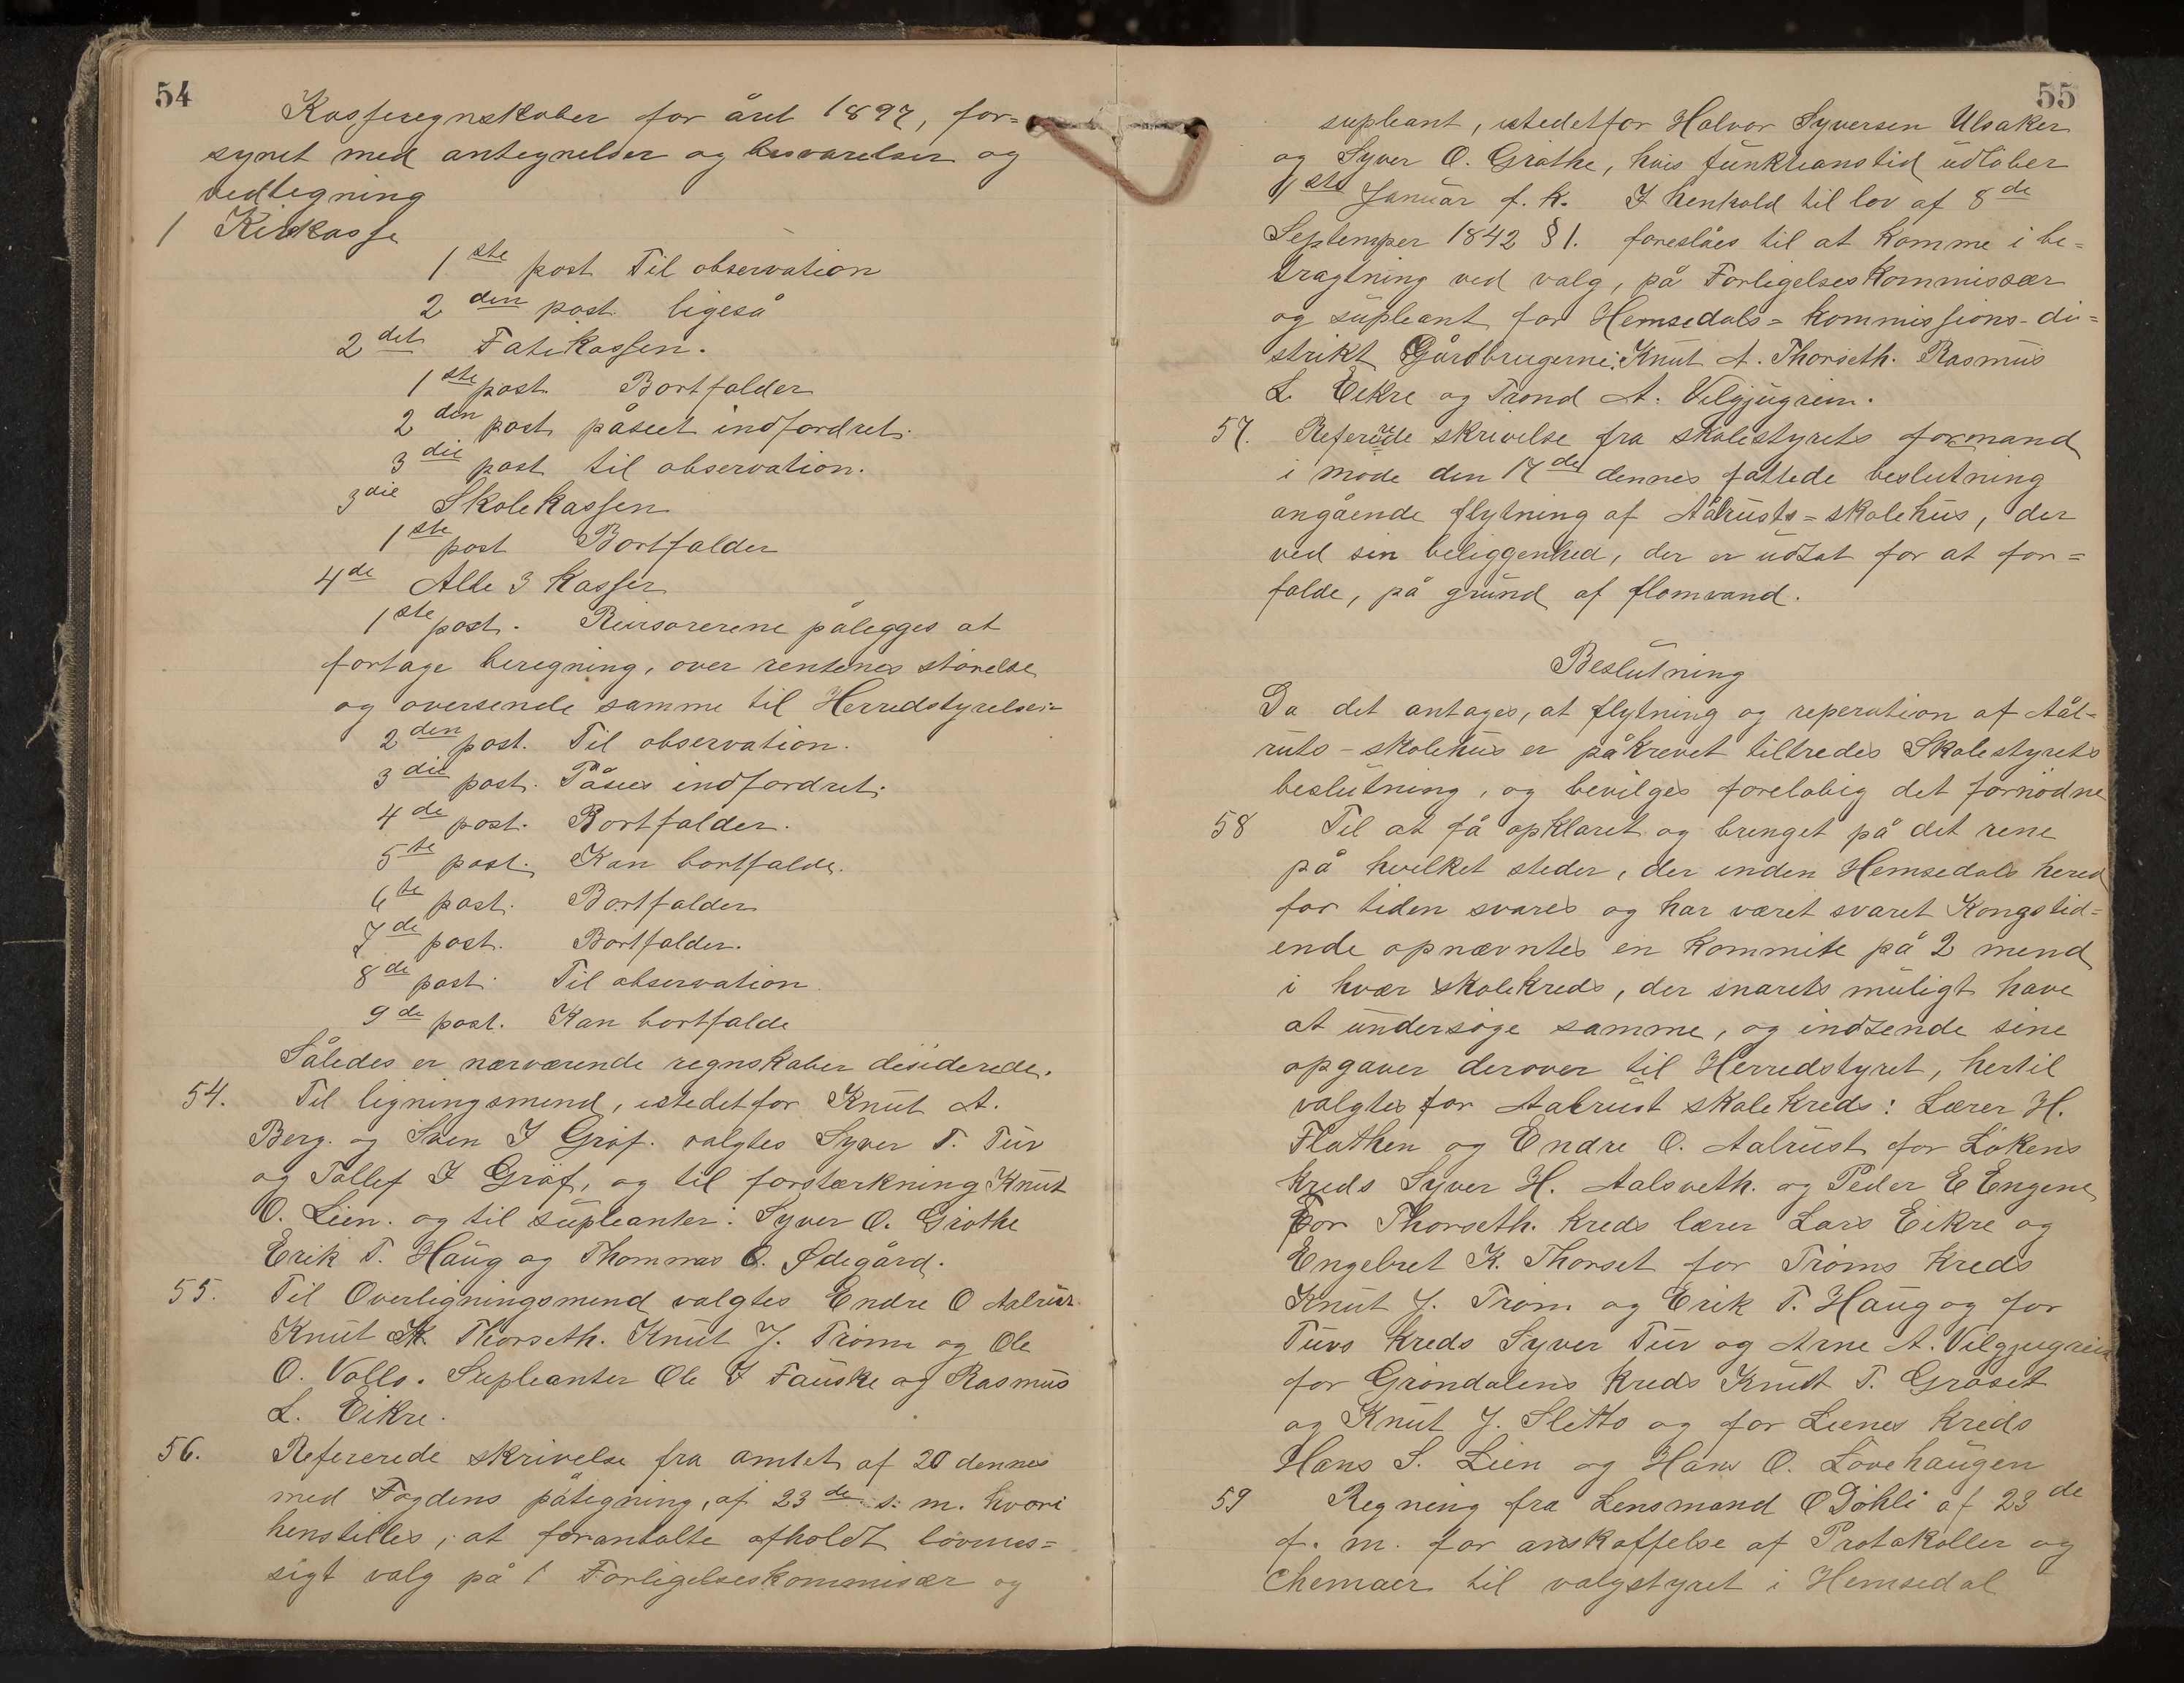 54
Kasseregnskaber for året 1897, for=
synet med antegnelser og besvarelser og
vedtegning
1 Kirkasse
1ste post Til observation
2den post. ligeså
2det Fatikassen.
1ste post. Bortfalder
2den post påseet indfordret.
3die post til observation.
3die Skolekassen
1ste post Bortfalder
4de Alle 3 Kasser
1ste post. Revisorerene pålegges at
fortage beregning, over rentenes störelse
og oversende samme til Herredstyrelsen
2den post. Til observation.
3die post. Påsees indfordret.
4de post. Bortfalder.
5te post. Kan bortfalde.
6te post. Bortfalder
7de post. Bortfalder.
8de post. Til observation.
9de post. Kan bortfalde
Således er nærværende regnskaber desiderede.
54. Til ligningsmend, istedetfor Knut A.
Berg. og Sven I Gröf. valgtes Syver T. Tuv
og Tollef I Gröf, og til forstærkning Knut
O. Lien. og til supleanter: Syver O. Gröthe
Erik T. Haug og Thommas O. Ødegård.
55. Til Overligningsmend valgtes Endre O Aalrust.
Knut K Thorseth. Knut J. Tröim og Ole
O. Vollo. Supleanter Ole I Fauske og Rasmus
L. Eikre.
56. Refererede skrivelse fra amtet af 20 dennes
med Fogdens påtegning, af 23de s. m. hvori
henstilles, at foranstalte afholdt lovmes=
sigt valg på 1 Forligelseskommisær og
55
supleant, istedetfor Halvor Syversen Ulsaker
og Syver O. Gröthe, hvis funktionstid udlöber
1ste Januar f. k. I henhold til lov af 8de
September 1842 § 1. foreslåes til at komme i be=
tragtning ved valg, på Forligelseskommissær
og supleant for Hemsedals=kommissions-di=
strikt Gårdbrugerne: Knut A. Thorseth. Rasmus
L Eikre og Trond A. Vilgjugrein.
57. Refererede skrivelse fra skolestyrets formand
i möde den 17de dennes fattede beslutning
angående flytning af Aålrusts=skolehus, der
ved sin beliggenhed, der er udsat for at for=
falde, på grund af flomvand.
Beslutning
Da det antages, at flytning og reperation af Aål-
ruts-skolehus er påkrevet tiltredes Skolestyrets
beslutning, og bevilges forelöbig det fornödne
58 Til at få opklaret og bringet på det rene
på hvilket steder, der inden Hemsedals hered
for tiden svares og har været svaret Kongstid=
ende opnævntes en kommite på 2 mend
i hvær skolekreds, der snarets muligt have
at undersöge samme, og indsende sine
opgaver derover til Herredstyret, hertil
valgtes for Aalrust skolekreds: Lærer H.
Flathen og Endre O. Aalrust for Lökens
kreds Syver H. Aalsveth. og Peder E Engene
For Thorseth. kreds lærer Lars Eikre og
Engebret K. Thorset for Tröims kreds
Knut J. Tröim og Erik T. Haug og for
Tuvs kreds Syver Tuv og Arne A. Vilgjugrein
for Gröndalens kreds Knut T. Gröset
og Knut J. Sletto og for Lienes kreds
Hans S. Lien og Hans O. Lövehaugen
59 Regning fra Lensmand O Döhli af 23de
f. m. for anskaffelse af Protokoller og
Chemaer til valgstyret i Hemsedal